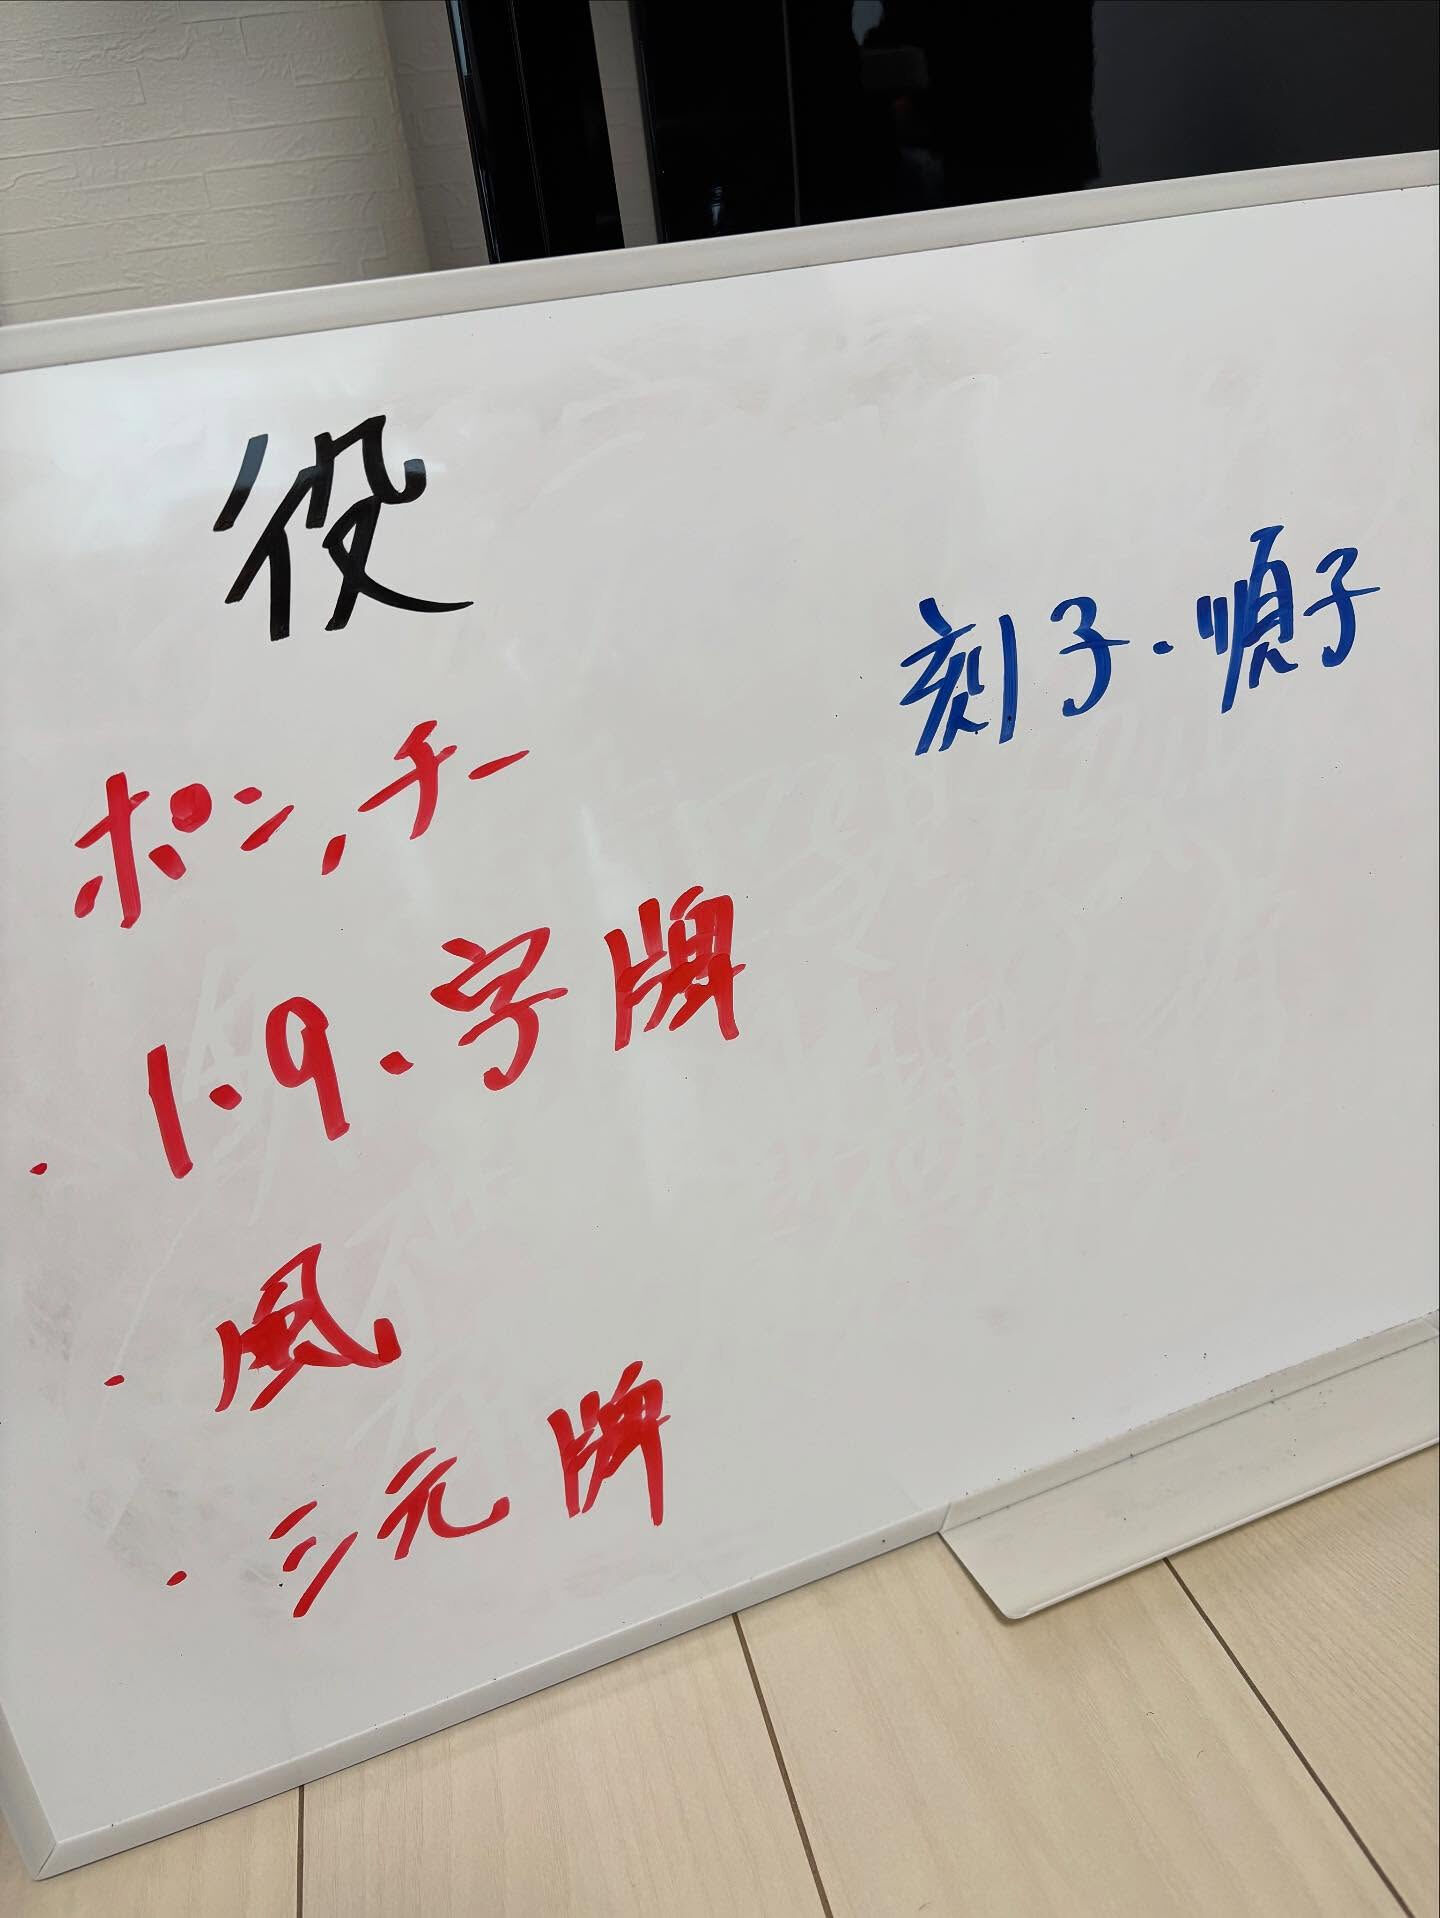 役
刻子・順子
ポン,チー
・1・9・字牌
・風
・三元牌